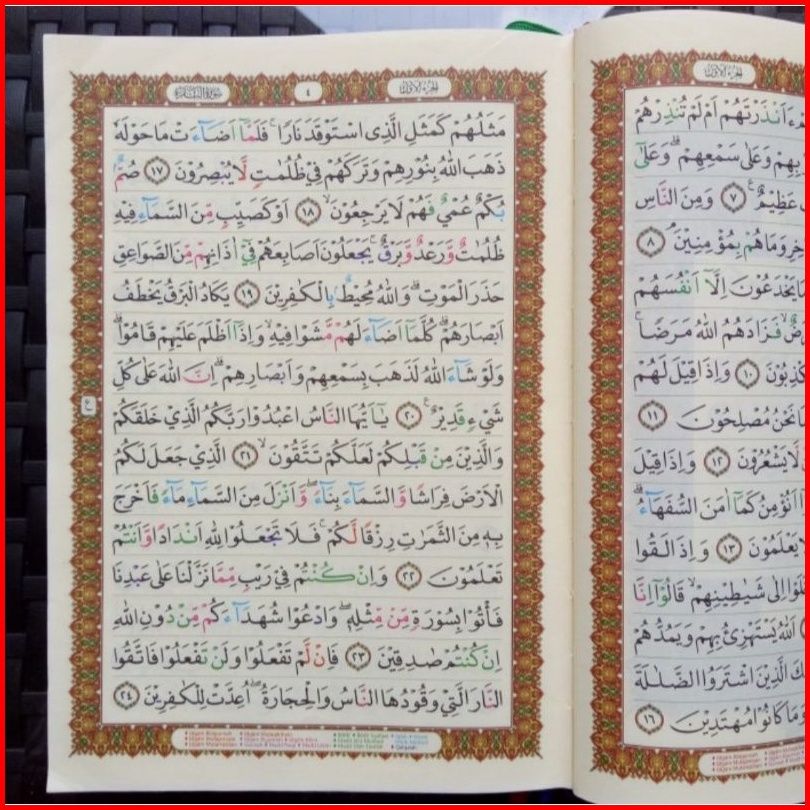 الجزء الاول
٤
سورة البقرة
مَثَلُهُمْ كَمَثَلِ الَّذِى اسْتَوْقَدَ نَارًا ۚ فَلَمَّآ اَضَاۤءَتْ مَا حَوْلَهٗ
ذَهَبَ اللّٰهُ بِنُوْرِهِمْ وَتَرَكَهُمْ فِيْ ظُلُمٰتٍ لَّا يُبْصِرُوْنَ ۝١٧ صُمٌّ ۢ
بُكْمٌ عُمْيٌ فَهُمْ لَا يَرْجِعُوْنَ ۙ ۝١٨ اَوْ كَصَيِّبٍ مِّنَ السَّمَاۤءِ فِيْهِ
ظُلُمٰتٌ وَّرَعْدٌ وَّبَرْقٌ ۚ يَجْعَلُوْنَ اَصَابِعَهُمْ فِيْٓ اٰذَانِهِمْ مِّنَ الصَّوَاعِقِ
حَذَرَ الْمَوْتِ ۗ وَاللّٰهُ مُحِيْطٌ ۢ بِالْكٰفِرِيْنَ ۝١٩ يَكَادُ الْبَرْقُ يَخْطَفُ
اَبْصَارَهُمْ ۗ كُلَّمَآ اَضَاۤءَ لَهُمْ مَّشَوْا فِيْهِ ۙ وَاِذَآ اَظْلَمَ عَلَيْهِمْ قَامُوْا ۗ
وَلَوْ شَاۤءَ اللّٰهُ لَذَهَبَ بِسَمْعِهِمْ وَاَبْصَارِهِمْ ۗ اِنَّ اللّٰهَ عَلٰى كُلِّ
شَيْءٍ قَدِيْرٌ ۚ ۝٢٠ يٰٓاَيُّهَا النَّاسُ اعْبُدُوْا رَبَّكُمُ الَّذِيْ خَلَقَكُمْ
وَالَّذِيْنَ مِنْ قَبْلِكُمْ لَعَلَّكُمْ تَتَّقُوْنَ ۙ ۝٢١ الَّذِيْ جَعَلَ لَكُمُ
الْاَرْضَ فِرَاشًا وَّالسَّمَاۤءَ بِنَاۤءً ۖ وَّاَنْزَلَ مِنَ السَّمَاۤءِ مَاۤءً فَاَخْرَجَ
بِهٖ مِنَ الثَّمَرٰتِ رِزْقًا لَّكُمْ ۚ فَلَا تَجْعَلُوْا لِلّٰهِ اَنْدَادًا وَّاَنْتُمْ
تَعْلَمُوْنَ ۝٢٢ وَاِنْ كُنْتُمْ فِيْ رَيْبٍ مِّمَّا نَزَّلْنَا عَلٰى عَبْدِنَا
فَأْتُوْا بِسُوْرَةٍ مِّنْ مِّثْلِهٖ ۖ وَادْعُوْا شُهَدَاۤءَكُمْ مِّنْ دُوْنِ اللّٰهِ
اِنْ كُنْتُمْ صٰدِقِيْنَ ۝٢٣ فَاِنْ لَّمْ تَفْعَلُوْا وَلَنْ تَفْعَلُوْا فَاتَّقُوا
النَّارَ الَّتِيْ وَقُوْدُهَا النَّاسُ وَالْحِجَارَةُ ۖ اُعِدَّتْ لِلْكٰفِرِيْنَ ۝٢٤
ع
الجزء الاول
ءَاَنْذَرْتَهُمْ اَمْ لَمْ تُنْذِرْهُمْ
بِهِمْ وَعَلٰى سَمْعِهِمْ ۗ وَعَلٰٓى
عَظِيْمٌ ۝٧ وَمِنَ النَّاسِ
وَمَا هُمْ بِمُؤْمِنِيْنَ ۘ ۝٨
يَخْدَعُوْنَ اِلَّآ اَنْفُسَهُمْ
فَزَادَهُمُ اللّٰهُ مَرَضًا ۚ
۝١٠ وَاِذَا قِيْلَ لَهُمْ
نَحْنُ مُصْلِحُوْنَ ۝١١
لَّا يَشْعُرُوْنَ ۝١٢ وَاِذَا قِيْلَ
اَنُؤْمِنُ كَمَآ اٰمَنَ السُّفَهَاۤءُ ۗ
لَا يَعْلَمُوْنَ ۝١٣ وَاِذَا لَقُوا
اِلٰى شَيٰطِيْنِهِمْ ۙ قَالُوْٓا اِنَّا
اَللّٰهُ يَسْتَهْزِئُ بِهِمْ وَيَمُدُّهُمْ
الَّذِيْنَ اشْتَرَوُا الضَّلٰلَةَ
وَمَا كَانُوْا مُهْتَدِيْنَ ۝١٦